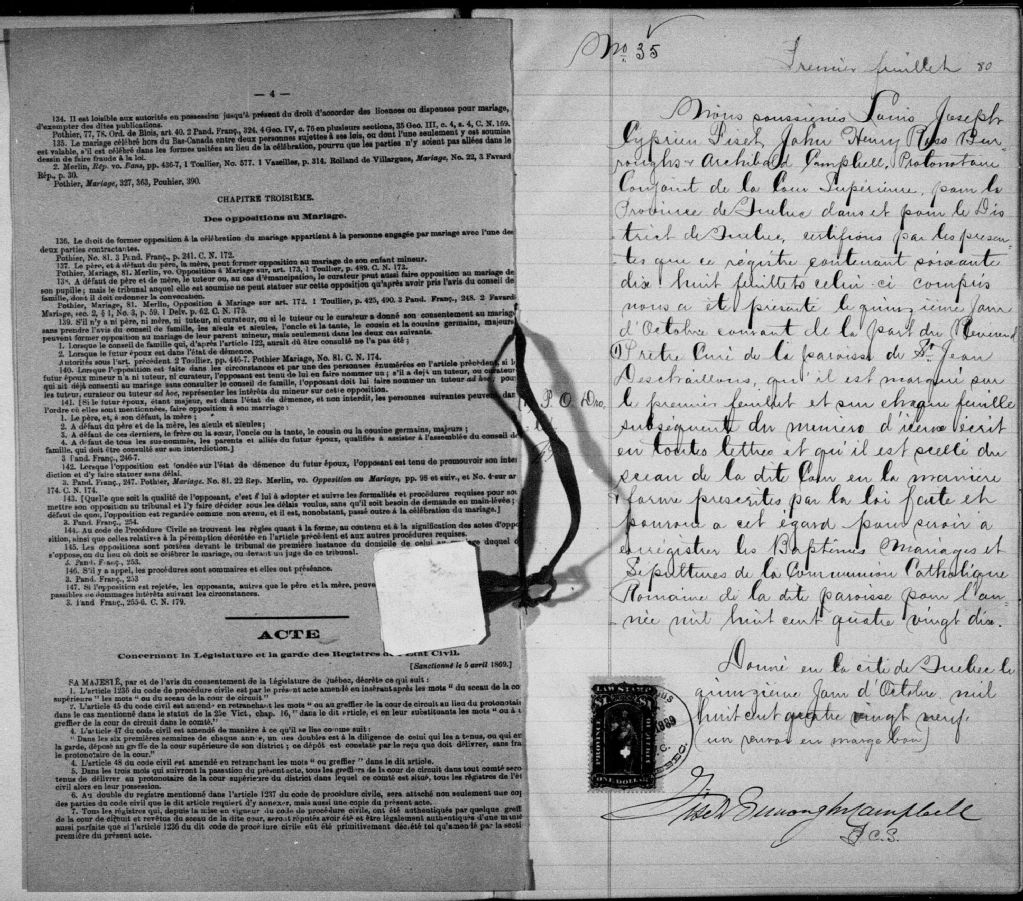 — 4 —
134. Il est loisible aux autorités en possession jusqu'à présent du droit d'accorder des licences ou dispenses pour mariage,
d'exempter des dites publications.
Pothier, 77, 78. Ord. de Blois, art. 40. 2 Pand. Franç., 324. 4 Geo. IV, c. 75 en plusieurs sections, 35 Geo. III, c. 4, s. 4, C. N. 169.
135. Le mariage célébré hors du Bas-Canada entre deux personnes sujettes à ses lois, ou dont l'une seulement y est soumise
est valable, s'il est célébré dans les formes usitées au lieu de la célébration, pourvu que les parties n'y soient pas allées dans le
dessin de faire fraude à la loi.
2. Merlin, Rép. vo. Bans, pp. 436-7, 1 Toulier, No. 577. 1 Vazeilles, p. 314. Rolland de Villargues, Mariage, No. 22, 3 Favard
Rép., p. 30.
Pothier, Mariage, 327, 363, Pouhier, 390.
CHAPITRE TROISIÈME.
Des oppositions au Mariage.
136. Le droit de former opposition à la célébration du mariage appartient à la personne engagée par mariage avec l'une des
deux parties contractantes.
Pothier, No. 81. 3 Pand. Franç., p. 241. C. N. 172.
137. Le père, et à défaut du père, la mère, peut former opposition au mariage de son enfant mineur.
Pothier, Mariage, 81. Merlin, vo. Opposition à Mariage sur, art. 173, 1 Toullier, p. 489. C. N. 173.
138. A défaut de père et de mère, le tuteur ou, au cas d'émancipation, le curateur peut aussi faire opposition au mariage de
son pupille; mais le tribunal auquel elle est soumise ne peut statuer sur cette opposition qu'après avoir pris l'avis du conseil de
famille, dont il doit ordonner la convocation.
Pothier, Mariage, 81. Merlin, Opposition à Mariage sur art. 172. 1 Toullier, p. 425, 490. 3 Pand. Franç., 248. 2 Favard
Mariage, sec. 2, § 1, No. 3, p. 59. 1 Delv. p. 62. C. N. 175.
139. S'il n'y a ni père, ni mère, ni tuteur, ni curateur, ou si le tuteur ou le curateur a donné son consentement au mariage
sans prendre l'avis du conseil de famille, les aïeuls et aïeules, l'oncle et la tante, le cousin et la cousine germains, majeurs
peuvent former opposition au mariage de leur parent mineur, mais seulement dans les deux cas suivants.
1. Lorsque le conseil de famille qui, d'après l'article 122, aurait dû être consulté ne l'a pas été;
2. Lorsque le futur époux est dans l'état de démence.
Autorités sous l'art. précédent. 2 Toullier, pp. 446-7. Pothier Mariage, No. 81. C. N. 174.
140. Lorsque l'opposition est faite dans les circonstances et par une des personnes énumérées en l'article précédent, si le
futur époux mineur n'a ni tuteur, ni curateur, l'opposant est tenu de lui en faire nommer un; s'il a déjà un tuteur, ou curateur
qui ait déjà consenti au mariage sans consulter le conseil de famille, l'opposant doit lui faire nommer un tuteur ad hoc, pour
les tuteur, curateur ou tuteur ad hoc, représenter les intérêts du mineur sur cette opposition.
141. [Si le futur époux, étant majeur, est dans l'état de démence, et non interdit, les personnes suivantes peuvent, dans
l'ordre où elles sont mentionnées, faire opposition à son mariage:
1. Le père, et, à son défaut, la mère;
2. A défaut du père et de la mère, les aïeuls et aïeules;
3. A défaut de ces derniers, le frère ou la sœur, l'oncle ou la tante, le cousin ou la cousine germains, majeurs;
4. A défaut de tous les sus-nommés, les parents et alliés du futur époux, qualifiés à assister à l'assemblée du conseil de
famille, qui doit être consulté sur son interdiction.]
3 Pand. Franç., 246-7.
142. Lorsque l'opposition est fondée sur l'état de démence du futur époux, l'opposant est tenu de promouvoir son inter
diction et d'y faire statuer sans délai.
3. Pand. Franç., 247. Pothier, Mariage. No. 81. 22 Rep. Merlin, vo. Opposition au Mariage, pp. 98 et suiv., et No. 4 sur ar
174. C. N. 174.
143. [Quelle que soit la qualité de l'opposant, c'est à lui à adopter et suivre les formalités et procédures requises pour sou
mettre son opposition au tribunal et l'y faire décider sous les délais voulus, sans qu'il soit besoin de demande en main-levée;
défaut de quoi, l'opposition est regardée comme non avenu, et il est, nonobstant, passé outre à la célébration du mariage.]
3. Pand. Franç., 254.
144. Au code de Procédure Civile se trouvent les règles quant à la forme, au contenu et à la signification des actes d'oppo
sition, ainsi que celles relatives à la péremption décrétée en l'article précédent et aux autres procédures requises.
145. Les oppositions sont portées devant le tribunal de première instance du domicile de celui au mariage duquel o
s'oppose, ou du lieu où doit se célébrer le mariage, ou devant un juge de ce tribunal.
3. Pand. Franç., 253.
146. S'il y a appel, les procédures sont sommaires et elles ont préséance.
3. Pand. Franç., 253
147. Si l'opposition est rejetée, les opposants, autres que le père et la mère, peuve
passibles de dommages intérêts suivant les circonstances.
3. Pand Franç., 255-6. C. N. 179.
ACTE
Concernant la Législature et la garde des Registres de l'Etat Civil.
[Sanctionné le 5 avril 1869.]
SA MAJESTÉ, par et de l'avis du consentement de la Législature de Québec, décrète ce qui suit:
1. L'article 1236 du code de procédure civile est par le présent acte amendé en insérant après les mots "du sceau de la co
supérieure" les mots "ou du sceau de la cour de circuit"
2. L'article 45 du code civil est amendé en retranchant les mots "ou au greffier de la cour de circuit au lieu du protonotaire
dans le cas mentionné dans le statut de la 25e Vict., chap. 16," dans le dit article, et en leur substituant les mots "ou à
greffier de la cour de circuit dans le comté."
4. L'article 47 du code civil est amendé de manière à ce qu'il se lise comme suit:
"Dans les six premières semaines de chaque année, un des doubles est à la diligence de celui qui les a tenus, ou qui en
la garde, déposé au greffe de la cour supérieure de son district; ce dépôt est constaté par le reçu que doit délivrer, sans frais
le protonotaire de la cour."
4. L'article 48 du code civil est amendé en retranchant les mots "ou greffier" dans le dit article.
5. Dans les trois mois qui suivront la passation du présent acte, tous les greffiers de la cour de circuit dans tout comté sero
tenus de délivrer au protonotaire de la cour supérieure du district dans lequel ce comté est situé, tous les régistres de l'ét
civil alors en leur possession.
6. Au double du registre mentionné dans l'article 1237 du code de procédure civile, sera attaché non seulement une cop
des parties du code civil que le dit article requiert d'y annexer, mais aussi une copie du présent acte.
7. Tous les régistres qui, depuis la mise en vigueur du code de procédure civile, ont été authentiqués par quelque greff
de la cour de circuit et revêtus du sceau de la dite cour, seront réputés avoir été et être légalement authentiqués d'une maniè
aussi parfaite que si l'article 1236 du dit code de procédure civile eût été primitivement décrété tel qu'amendé par la secti
première du présent acte.
No. 35
Premier feuillet 80
Nous soussignés Louis Joseph
Cyprien Fiset, John Henry Ross Bur-
roughs & Archibald Campbell, Protonotaire
Conjoint de la Cour Supérieure, pour la
Province de Québec dans et pour le Dis
trict de Québec, certifions par les présen-
tes que ce régistre contenant soixante
dix huit feuillets celui-ci compris
nous a été présenté le quinzième Jour
d'Octobre courant de la part du Révérend
Prêtre Curé de la paroisse de St. Jean
Deschaillons, qu'il est marqué sur
le premier feuillet et sur chaque feuille
subséquent du numéro d'icelui écrit
en toutes lettres et qu'il est scellé du
sceau de la dite Cour en la manière
& forme prescrites par la loi faite et
pourvue a cet égard pour servir a
enrégistrer les Baptêmes Mariages et
Sépultures de la Communion Catholique
Romaine de la dite paroisse pour l'an-
née mil huit cent quatre vingt dix.
P. O.
Donné en la cité de Québec le
quinzième Jour d'Octobre mil
huit cent quatre vingt neuf
(un renvoi en marge bon)
LAW STAMP
PROVINCE OF QUEBEC
ONE DOLLAR
1889
Fiset Burroughs Campbell
P.C.S.